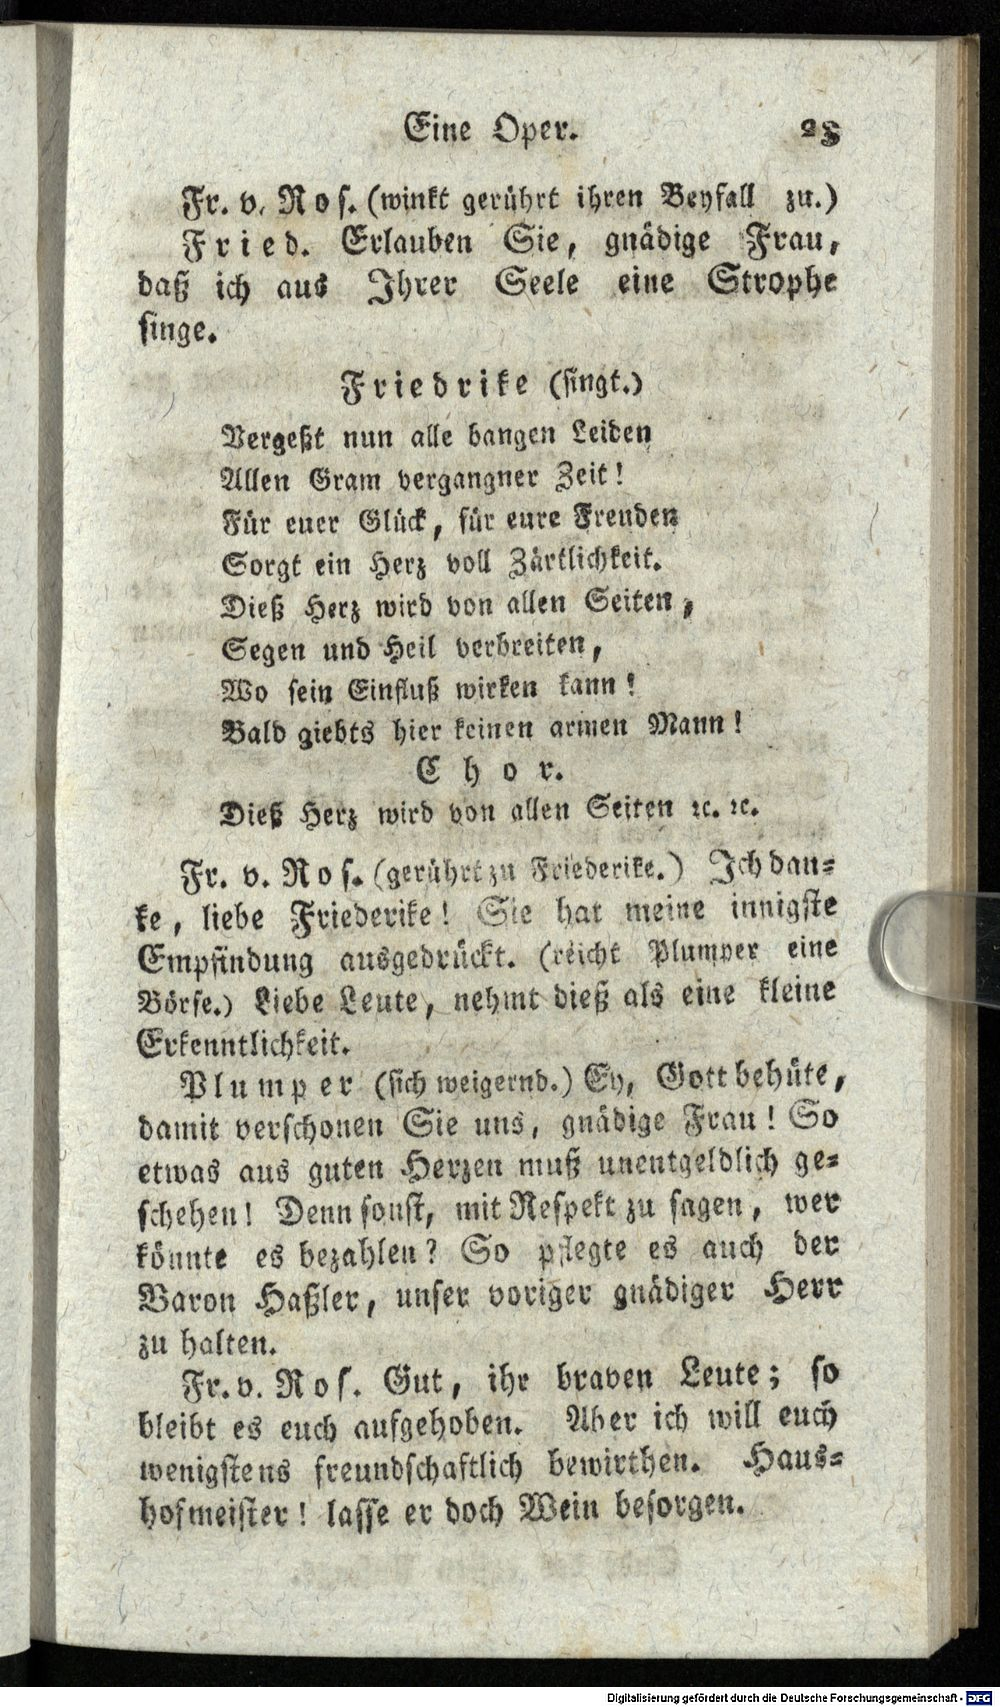 Eine Oper. 23
Fr. v. Ros. (winkt gerührt ihren Beyfall zu.)
Fried. Erlauben Sie, gnädige Frau,
daß ich aus Ihrer Seele eine Strophe
singe.
Friedrike (singt.)
Vergeßt nun alle bangen Leiden
Allen Gram vergangner Zeit!
Für euer Glück, für eure Freuden
Sorgt ein Herz voll Zärtlichkeit.
Dieß Herz wird von allen Seiten,
Segen und Heil verbreiten,
Wo sein Einfluß wirken kann!
Bald giebts hier keinen armen Mann!
Chor.
Dieß Herz wird von allen Seiten ꝛc. ꝛc.
Fr. v. Ros. (gerührt zu Friederike.) Ich dan-
ke, liebe Friederike! Sie hat meine innigste
Empfindung ausgedrückt. (reicht Plumper eine
Börse.) Liebe Leute, nehmt dieß als eine kleine
Erkenntlichkeit.
Plumper (sich weigernd.) Ey, Gott behüte,
damit verschonen Sie uns, gnädige Frau! So
etwas aus guten Herzen muß unentgeldlich ge-
schehen! Denn sonst, mit Respekt zu sagen, wer
könnte es bezahlen? So pflegte es auch der
Baron Haßler, unser voriger gnädiger Herr
zu halten.
Fr. v. Ros. Gut, ihr braven Leute; so
bleibt es euch aufgehoben. Aber ich will euch
wenigstens freundschaftlich bewirthen. Haus-
hofmeister! lasse er doch Wein besorgen.
Digitalisierung gefördert durch die Deutsche Forschungsgemeinschaft - DFG